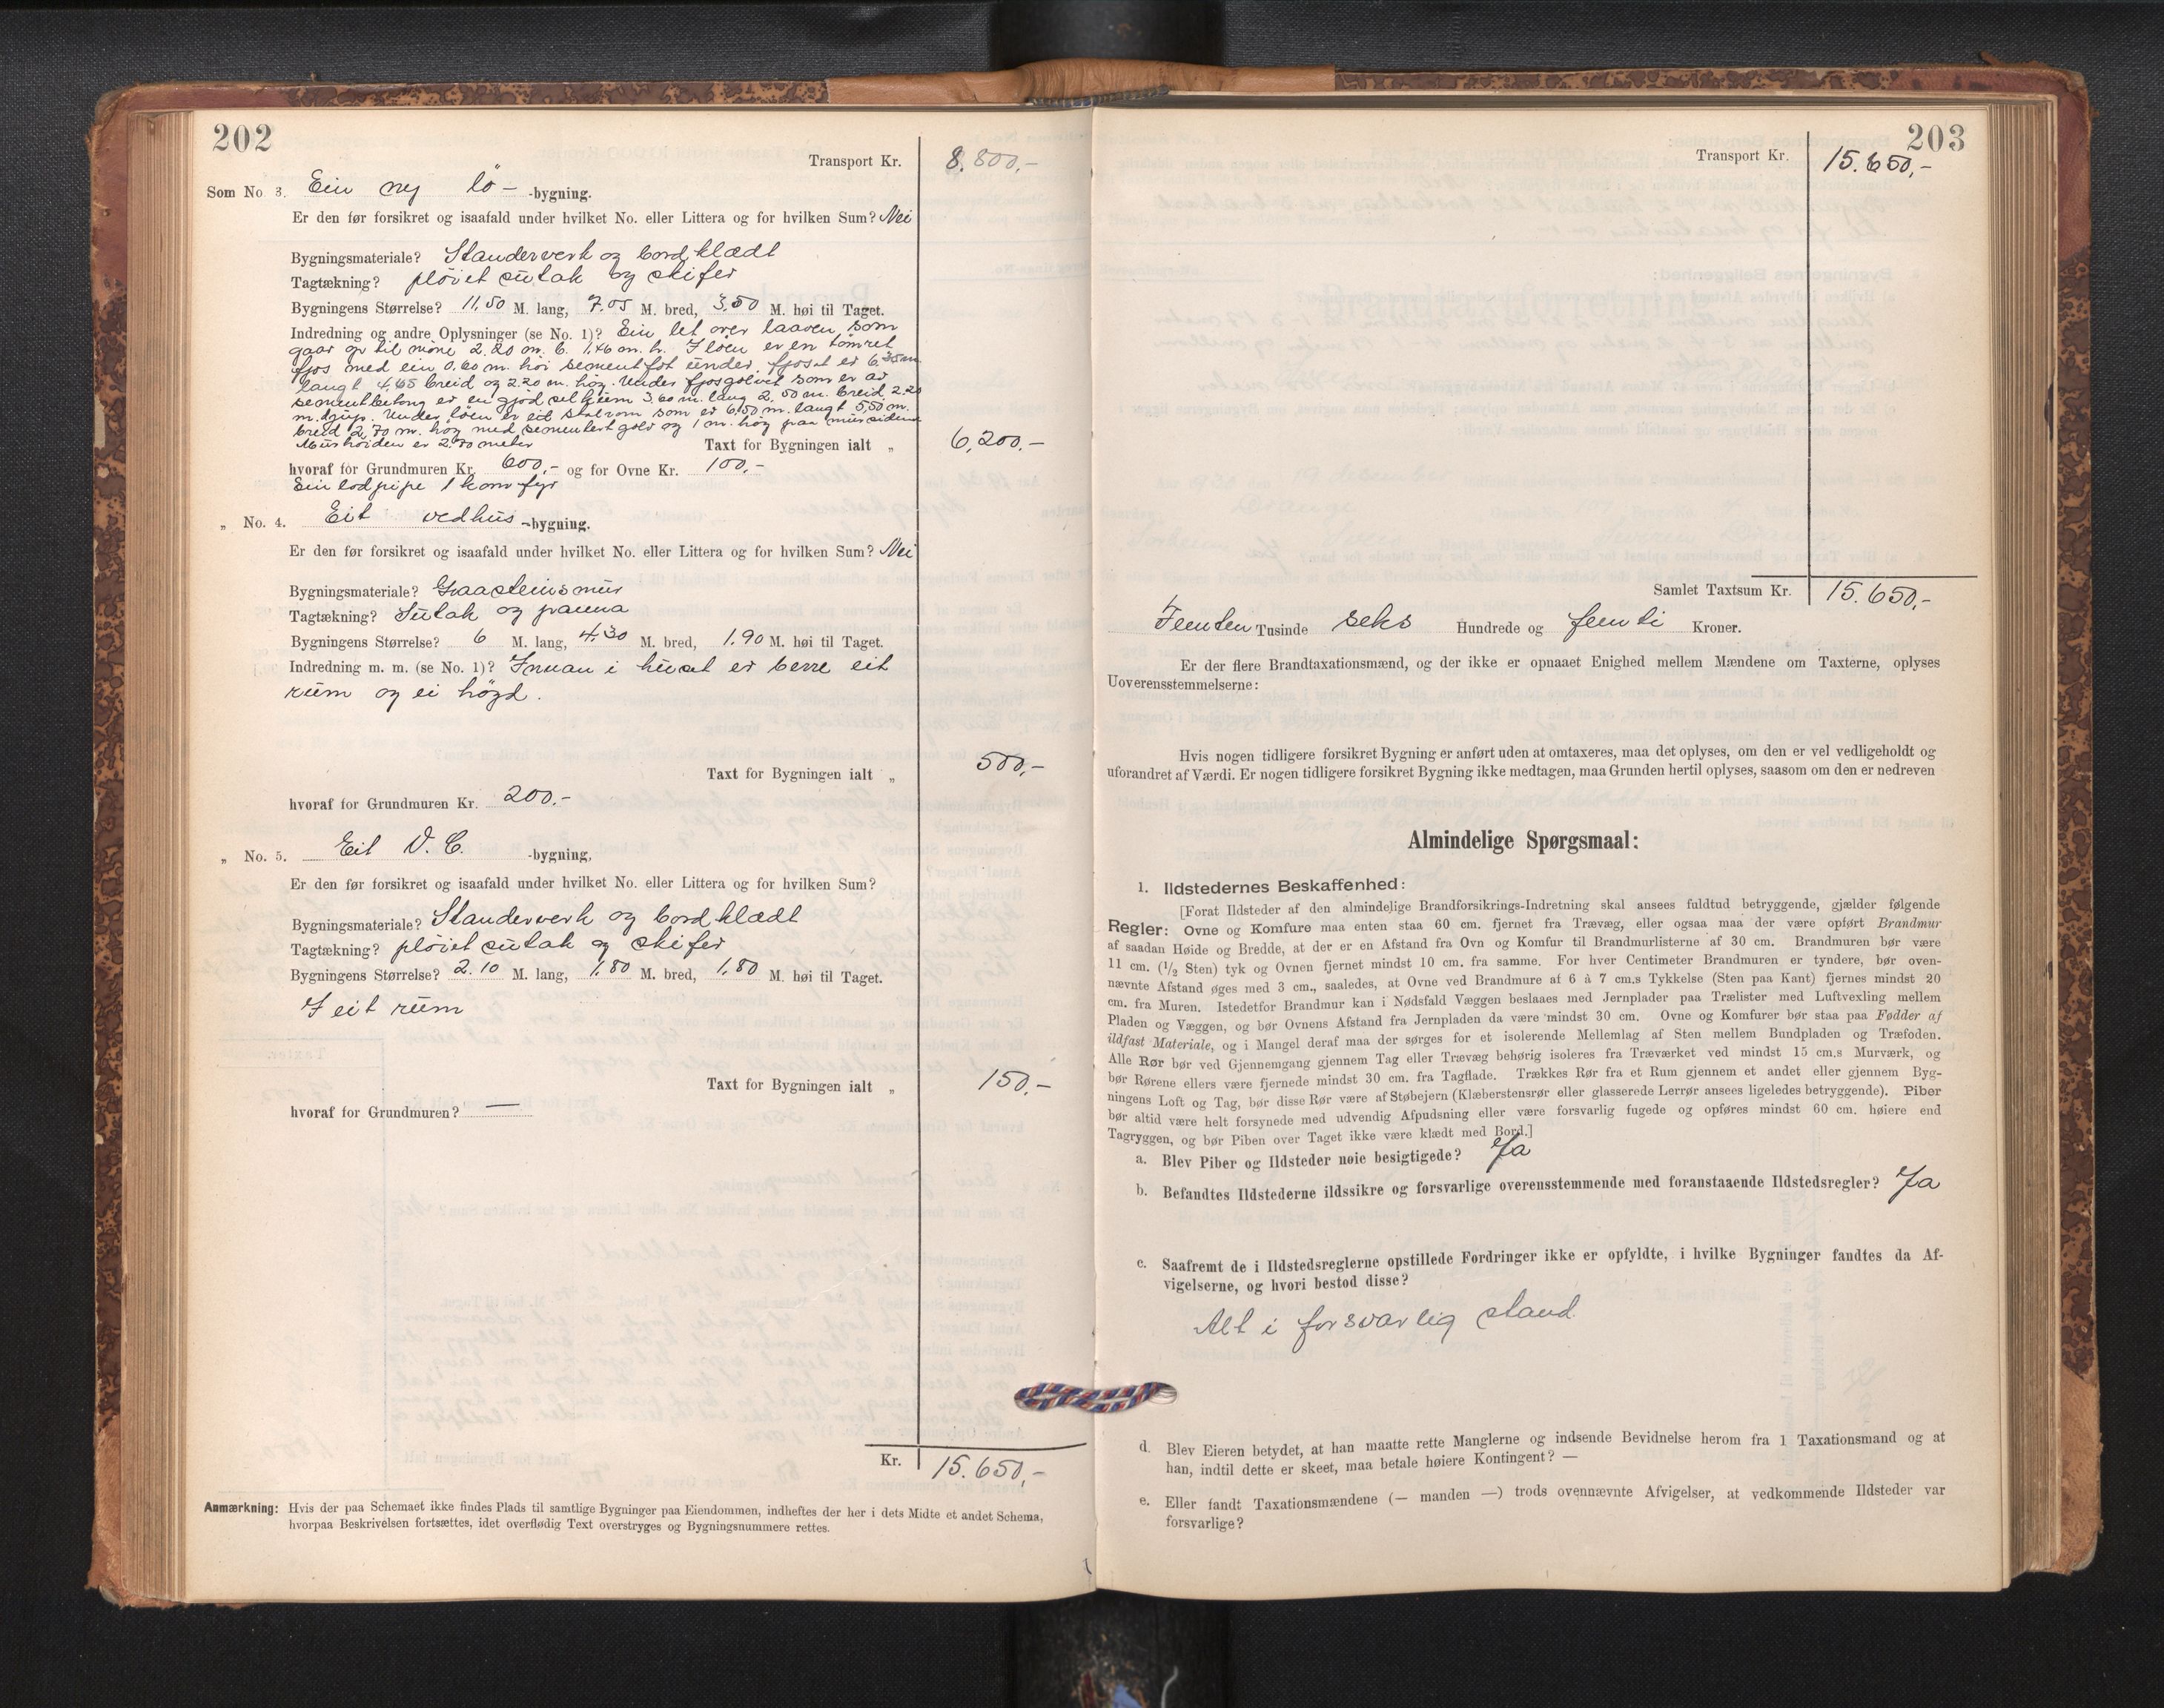 202
Transport Kr. 8.800,-
Som No 3. Ein ny lö- -bygning.
Er den før forsikret og isaafald under hvilket No. eller Littera og for hvilken Sum? Nei
Bygningsmateriale? Standerverk og bordklædt
Tagtækning? pløiet sutak og skifer
Bygningens Størrelse? 11,50 M. lang, 7.05 M. bred, 3,50 M. høi til Taget.
Indredning og andre Oplysninger (se No. 1)? Ein let over laaven som
gaar op til møne 2.20 m. b. 1,46 m. h. I löen er en tömret
fjos med ein 0.60 m. höi sementfot under, fjoset er 6.35 m
langt 4,65 breid og 2.20 m. høg. Under fjosgolvet som er av
sementbetong er en gjödselkum 3,60 m. lang 2,50 m. breid, 2.20
m. djup. Under löen er eit stalrom som er 6,50 m. langt 5,50 m.
breid 2,70 m. høg med sementert golv og 1 m. høg paa mursidene
Murhøiden er 2.70 meter
Taxt for Bygningen ialt „ 6,200,-
hvoraf for Grundmuren Kr. 600,- og for Ovne Kr. 100,-
Ein lodpipe 1 komfyr
„ No. 4. Eit vedhus -bygning.
Er den før forsikret og isaafald under hvilket No. eller Littera og for hvilken Sum? Nei
Bygningsmateriale? Graasteinsmur
Tagtækning? Sutak og panna
Bygningens Størrelse? 6 M. lang, 4.30 M. bred, 1.90 M. høi til Taget.
Indredning m. m. (se No. 1)? Innan i huset er berre eit
rum og ei högd.
Taxt for Bygningen ialt „ 500,-
hvoraf for Grundmuren Kr. 200.-
„ No. 5. Eit V. C. -bygning,
Er den før forsikret og isaafald under hvilket No. eller Littera og for hvilken Sum?
Bygningsmateriale? Standerverk og bordklædt
Tagtækning? pløiet sutak og skifer
Bygningens Størrelse? 2.10 M. lang, 1,80 M. bred, 1,80 M. høi til Taget.
I eit rum
Taxt for Bygningen ialt „ 150,-
hvoraf for Grundmuren? —
Kr. 15.650,-
Anmærkning: Hvis der paa Schemaet ikke findes Plads til samtlige Bygninger paa Eiendommen, indheftes der her i dets Midte et andet Schema,
hvorpaa Beskrivelsen fortsættes, idet overflødig Text overstryges og Bygningsnummere rettes.
203
Transport Kr. 15.650,-
Samlet Taxtsum Kr. 15.650,-
Femten Tusinde seks Hundrede og femti Kroner.
Er der flere Brandtaxationsmænd, og der ikke er opnaaet Enighed mellem Mændene om Taxterne, oplyses
Uoverensstemmelserne:
Hvis nogen tidligere forsikret Bygning er anført uden at omtaxeres, maa det oplyses, om den er vel vedligeholdt og
uforandret af Værdi. Er nogen tidligere forsikret Bygning ikke medtagen, maa Grunden hertil oplyses, saasom om den er nedreven
Almindelige Spørgsmaal:
1. Ildstedernes Beskaffenhed:
[Forat Ildsteder af den almindelige Brandforsikrings-Indretning skal ansees fuldtud betryggende, gjælder følgende
Regler: Ovne og Komfure maa enten staa 60 cm. fjernet fra Trævæg, eller ogsaa maa der være opført Brandmur
af saadan Høide og Bredde, at der er en Afstand fra Ovn og Komfur til Brandmurlisterne af 30 cm. Brandmuren bør være
11 cm. (1/2 Sten) tyk og Ovnen fjernet mindst 10 cm. fra samme. For hver Centimeter Brandmuren er tyndere, bør oven-
nævnte Afstand øges med 3 cm., saaledes, at Ovne ved Brandmure af 6 à 7 cm.s Tykkelse (Sten paa Kant) fjernes mindst 20
cm. fra Muren. Istedetfor Brandmur kan i Nødsfald Væggen beslaaes med Jernplader paa Trælister med Luftvexling mellem
Pladen og Væggen, og bør Ovnens Afstand fra Jernpladen da være mindst 30 cm. Ovne og Komfurer bør staa paa Fødder af
ildfast Materiale, og i Mangel deraf maa der sørges for et isolerende Mellemlag af Sten mellem Bundpladen og Træfoden.
Alle Rør bør ved Gjennemgang gjennem Tag eller Trævæg behørig isoleres fra Træværket ved mindst 15 cm.s Murværk, og
bør Rørene ellers være fjernede mindst 30 cm. fra Tagflade. Trækkes Rør fra et Rum gjennem et andet eller gjennem Byg-
ningens Loft og Tag, bør disse Rør være af Støbejern (Klæberstensrør eller glasserede Lerrør ansees ligeledes betryggende). Piber
bør altid være helt forsynede med udvendig Afpudsning eller være forsvarlig fugede og opføres mindst 60 cm. høiere end
Tagryggen, og bør Piben over Taget ikke være klædt med Bord.]
a. Blev Piber og Ildsteder nøie besigtigede? Ja
b. Befandtes Ildstederne ildssikre og forsvarlige overensstemmende med foranstaaende Ildstedsregler? Ja
c. Saafremt de i Ildstedsreglerne opstillede Fordringer ikke er opfyldte, i hvilke Bygninger fandtes da Af-
vigelserne, og hvori bestod disse?
Alt i forsvarlig stand.
d. Blev Eieren betydet, at han maatte rette Manglerne og indsende Bevidnelse herom fra 1 Taxationsmand og at
han, indtil dette er skeet, maa betale høiere Kontingent? —
e. Eller fandt Taxationsmændene (— manden —) trods ovennævnte Afvigelser, at vedkommende Ildsteder var
forsvarlige?